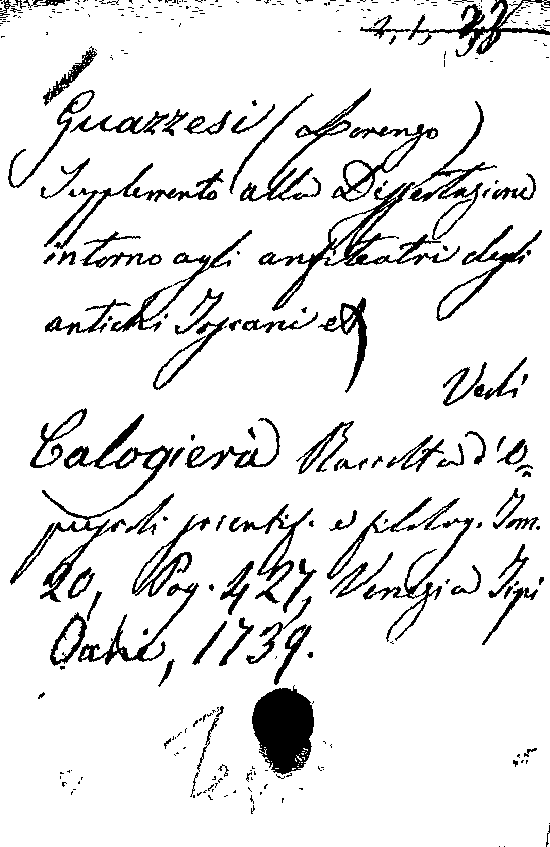 Guazzesi (Lorenzo)
Supplemento alla Dissertazione
intorno agli anfiteatri degli
antichi Toscani et
Vedi
Calogierà Raccolta d'O=
puscoli scientif. e filolog. Tom.
20, Pag. 427, Venezia Tipi
Occhi, 1739.